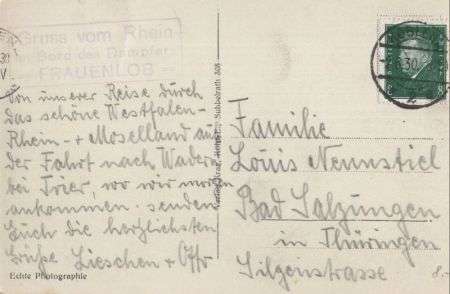 Gruss vom Rhein
an Bord des Dampfer
FRAUENLOB
Von unserer Reise durch
das schöne Westfalen-
Rhein- + Moselland auf
der Fahrt nach Wadern
bei Trier, wo wir morgen
ankommen. senden
Euch die herzlichsten
Grüße Lieschen + Otto
Echte Photographie
Subbelrath. 308
Familie
Louis Nennstiel
Bad Salzungen
in Thüringen
Silgenstrasse
30
8
8.-